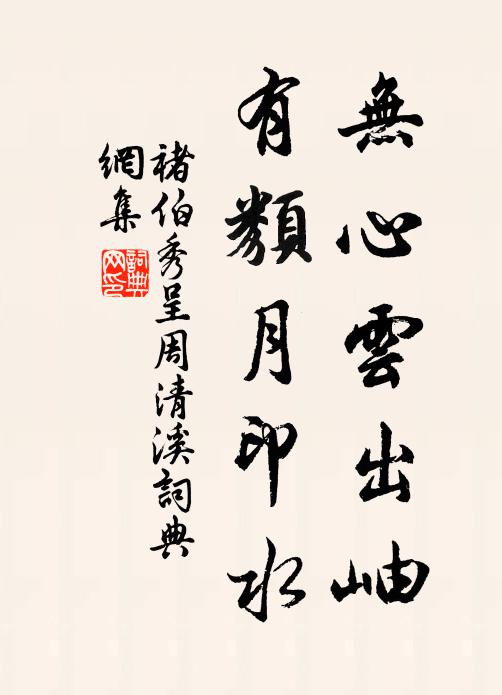 無心雲出岫
有類月印水
褚伯秀呈周清溪詞典
網集
詞典
网印